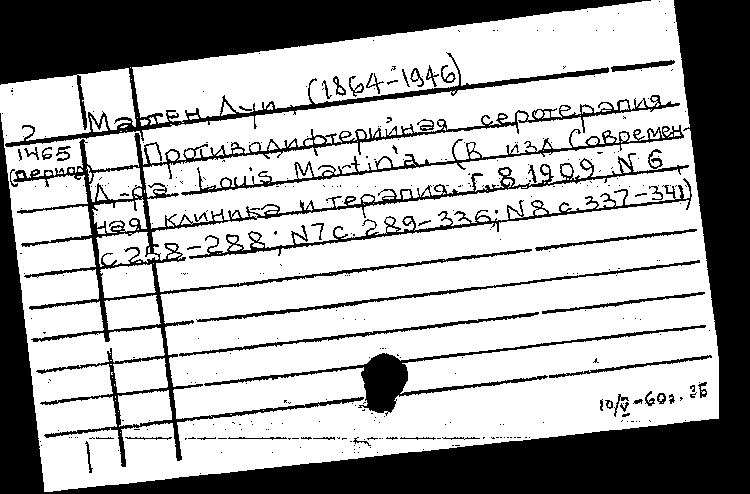 Мартен, Луи, (1864-1946)
2
1465
(период)
Противодифтерийная серотерапия.
Д-ра Louis Martin'a. (В изд Современ-
ная клиника и терапия. Г. 8. 1909. N 6.
с. 258-288; N7 с. 289-336; N8 с. 337-341)
10/V-60г. ЗБ